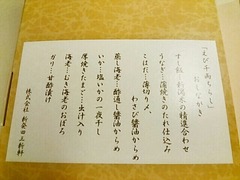 「えび千両ちらし」
おしながき
すし飯…新潟米の精選合わせ
うなぎ…蒲焼きのたれ仕込み
こはだ…薄切り〆、
わさび醤油からめ
蒸し海老…酢通し醤油からめ
いか…塩いかの一夜干し
厚焼きたまご…出汁入り
海老…むき海老のおぼろ
ガリ…甘酢漬け
株式会社 新発田三新軒